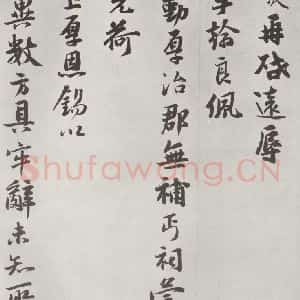 再啓遠辱
翰良佩
勤厚治郡無補丐祠
荷
上厚恩錫以
異數方具牢辭未知
Shufawang.CN